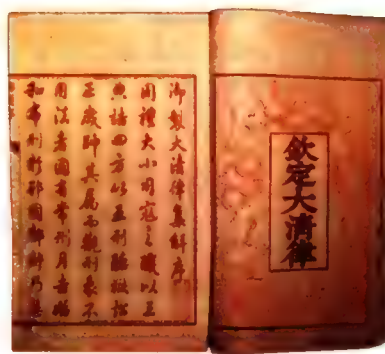 欽定大清律
御製大清律集解序
周禮大小司寇之職以三
典詰四方以五刑聽獄訟
正歲帥其屬而觀刑象不
用法者國有常刑月吉始
和布刑於邦國都鄙乃